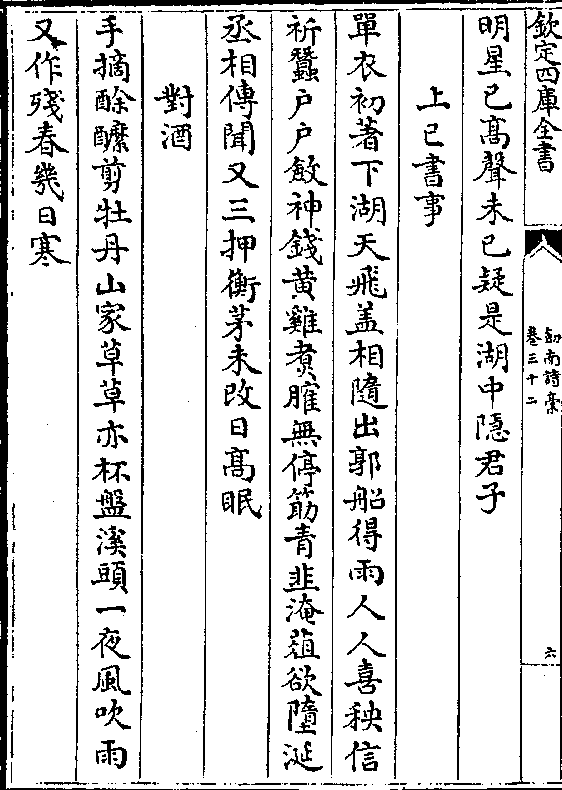 欽定四庫全書
劔南詩稾
卷三十二
六
明星已髙聲未已疑是湖中隱君子
上巳書事
單衣初著下湖天飛盖相隨出郭船得雨人人喜秧信
祈蠶户户斂神錢黄雞煑臛無停筯青韭淹葅欲墮涎
丞相傳聞又三押衡茅未改日髙眠
對酒
手摘酴醾剪牡丹山家草草亦杯盤溪頭一夜風吹雨
又作殘春幾日寒